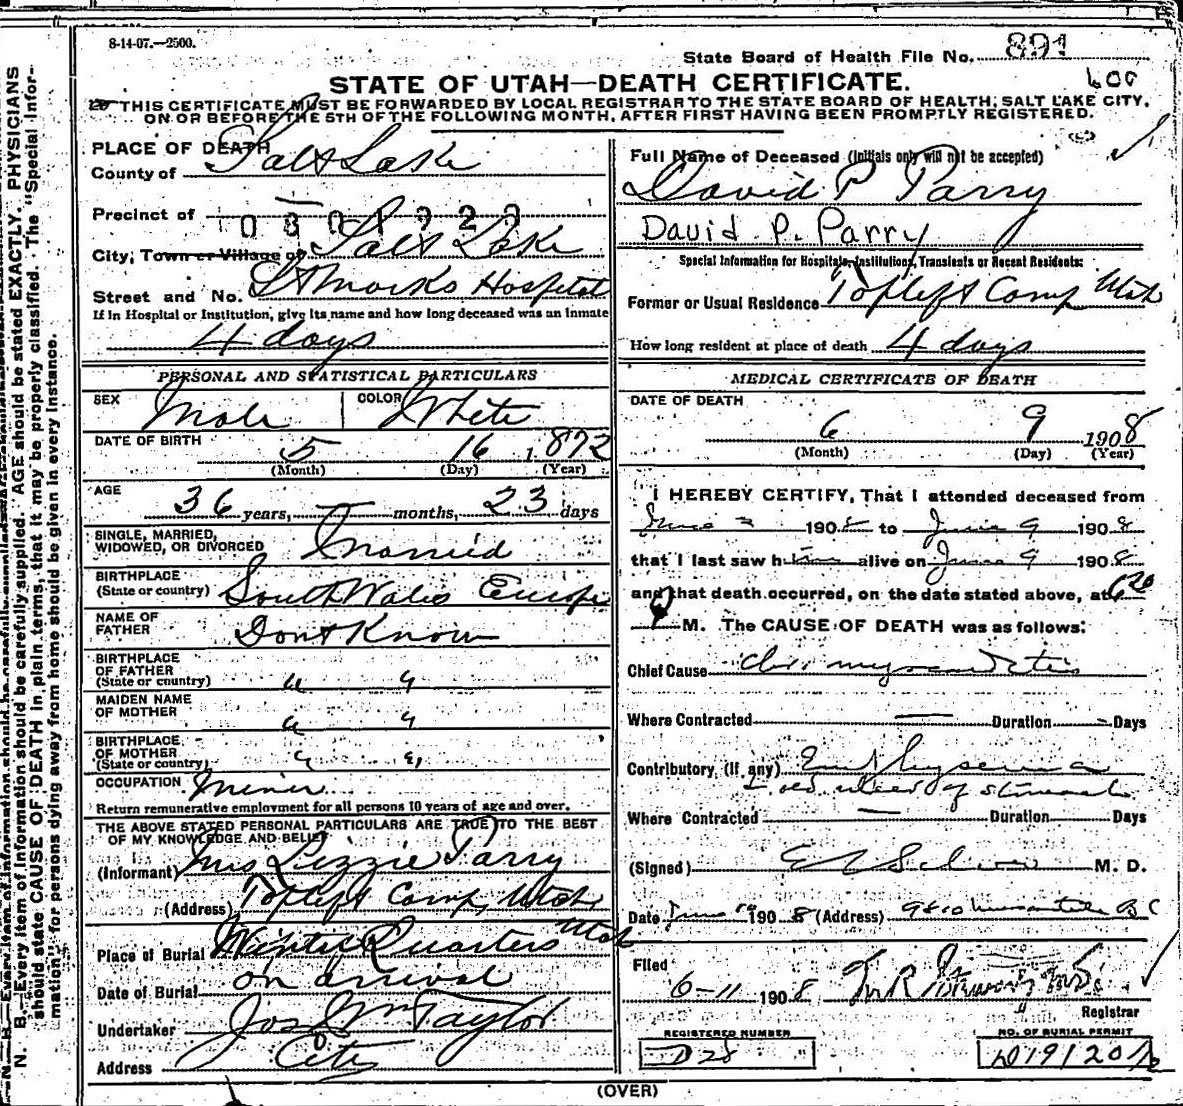 8-14-07.—2500.
State Board of Health File No. 891
STATE OF UTAH—DEATH CERTIFICATE.
600
THIS CERTIFICATE MUST BE FORWARDED BY LOCAL REGISTRAR TO THE STATE BOARD OF HEALTH, SALT LAKE CITY,
ON OR BEFORE THE 5TH OF THE FOLLOWING MONTH, AFTER FIRST HAVING BEEN PROMPTLY REGISTERED.
PLACE OF DEATH
County of Salt Lake
Precinct of
City, Town or Village of Salt Lake
Street and No. St Marks Hospital
If in Hospital or Institution, give its name and how long deceased was an inmate
4 days
PERSONAL AND STATISTICAL PARTICULARS
SEX Male COLOR White
DATE OF BIRTH 5 16 1872
(Month) (Day) (Year)
AGE
36 years, — months, 23 days
SINGLE, MARRIED,
WIDOWED, OR DIVORCED Married
BIRTHPLACE
(State or country) South Wales Europe
NAME OF
FATHER Dont Know
BIRTHPLACE
OF FATHER
(State or country) " "
MAIDEN NAME
OF MOTHER " "
BIRTHPLACE
OF MOTHER
(State or country) " "
OCCUPATION Miner
Return remunerative employment for all persons 10 years of age and over.
THE ABOVE STATED PERSONAL PARTICULARS ARE TRUE TO THE BEST
OF MY KNOWLEDGE AND BELIEF
(Informant) Mrs Lizzie Parry
(Address) Toplift Camp, Utah
Place of Burial Winter Quarters Utah
Date of Burial on arrival
Undertaker Jos Wm Taylor
Address City
Full Name of Deceased (Initials only will not be accepted)
David P Parry
David P. Parry
Special Information for Hospitals, Institutions, Transients or Recent Residents:
Former or Usual Residence Toplift Camp Utah
How long resident at place of death 4 days
MEDICAL CERTIFICATE OF DEATH
DATE OF DEATH
6 9 1908
(Month) (Day) (Year)
I HEREBY CERTIFY, That I attended deceased from
June 1908 to June 9 1908
that I last saw him alive on June 9 1908
and that death occurred, on the date stated above, at 6 20
P M. The CAUSE OF DEATH was as follows:
Chief Cause Chr. myocarditis
Where Contracted — Duration — Days
Contributory, (if any) Emphysema
+ old ulcer of stomach
Where Contracted — Duration Days
(Signed) M. D.
Date June 1908 (Address)
Filed
6-11 1908
Registrar
REGISTERED NUMBER
D28
NO. OF BURIAL PERMIT
(OVER)
N. B.—Every item of information should be carefully supplied. AGE should be stated EXACTLY. PHYSICIANS
should state CAUSE OF DEATH in plain terms, that it may be properly classified. The "Special Infor-
mation" for persons dying away from home should be given in every instance.